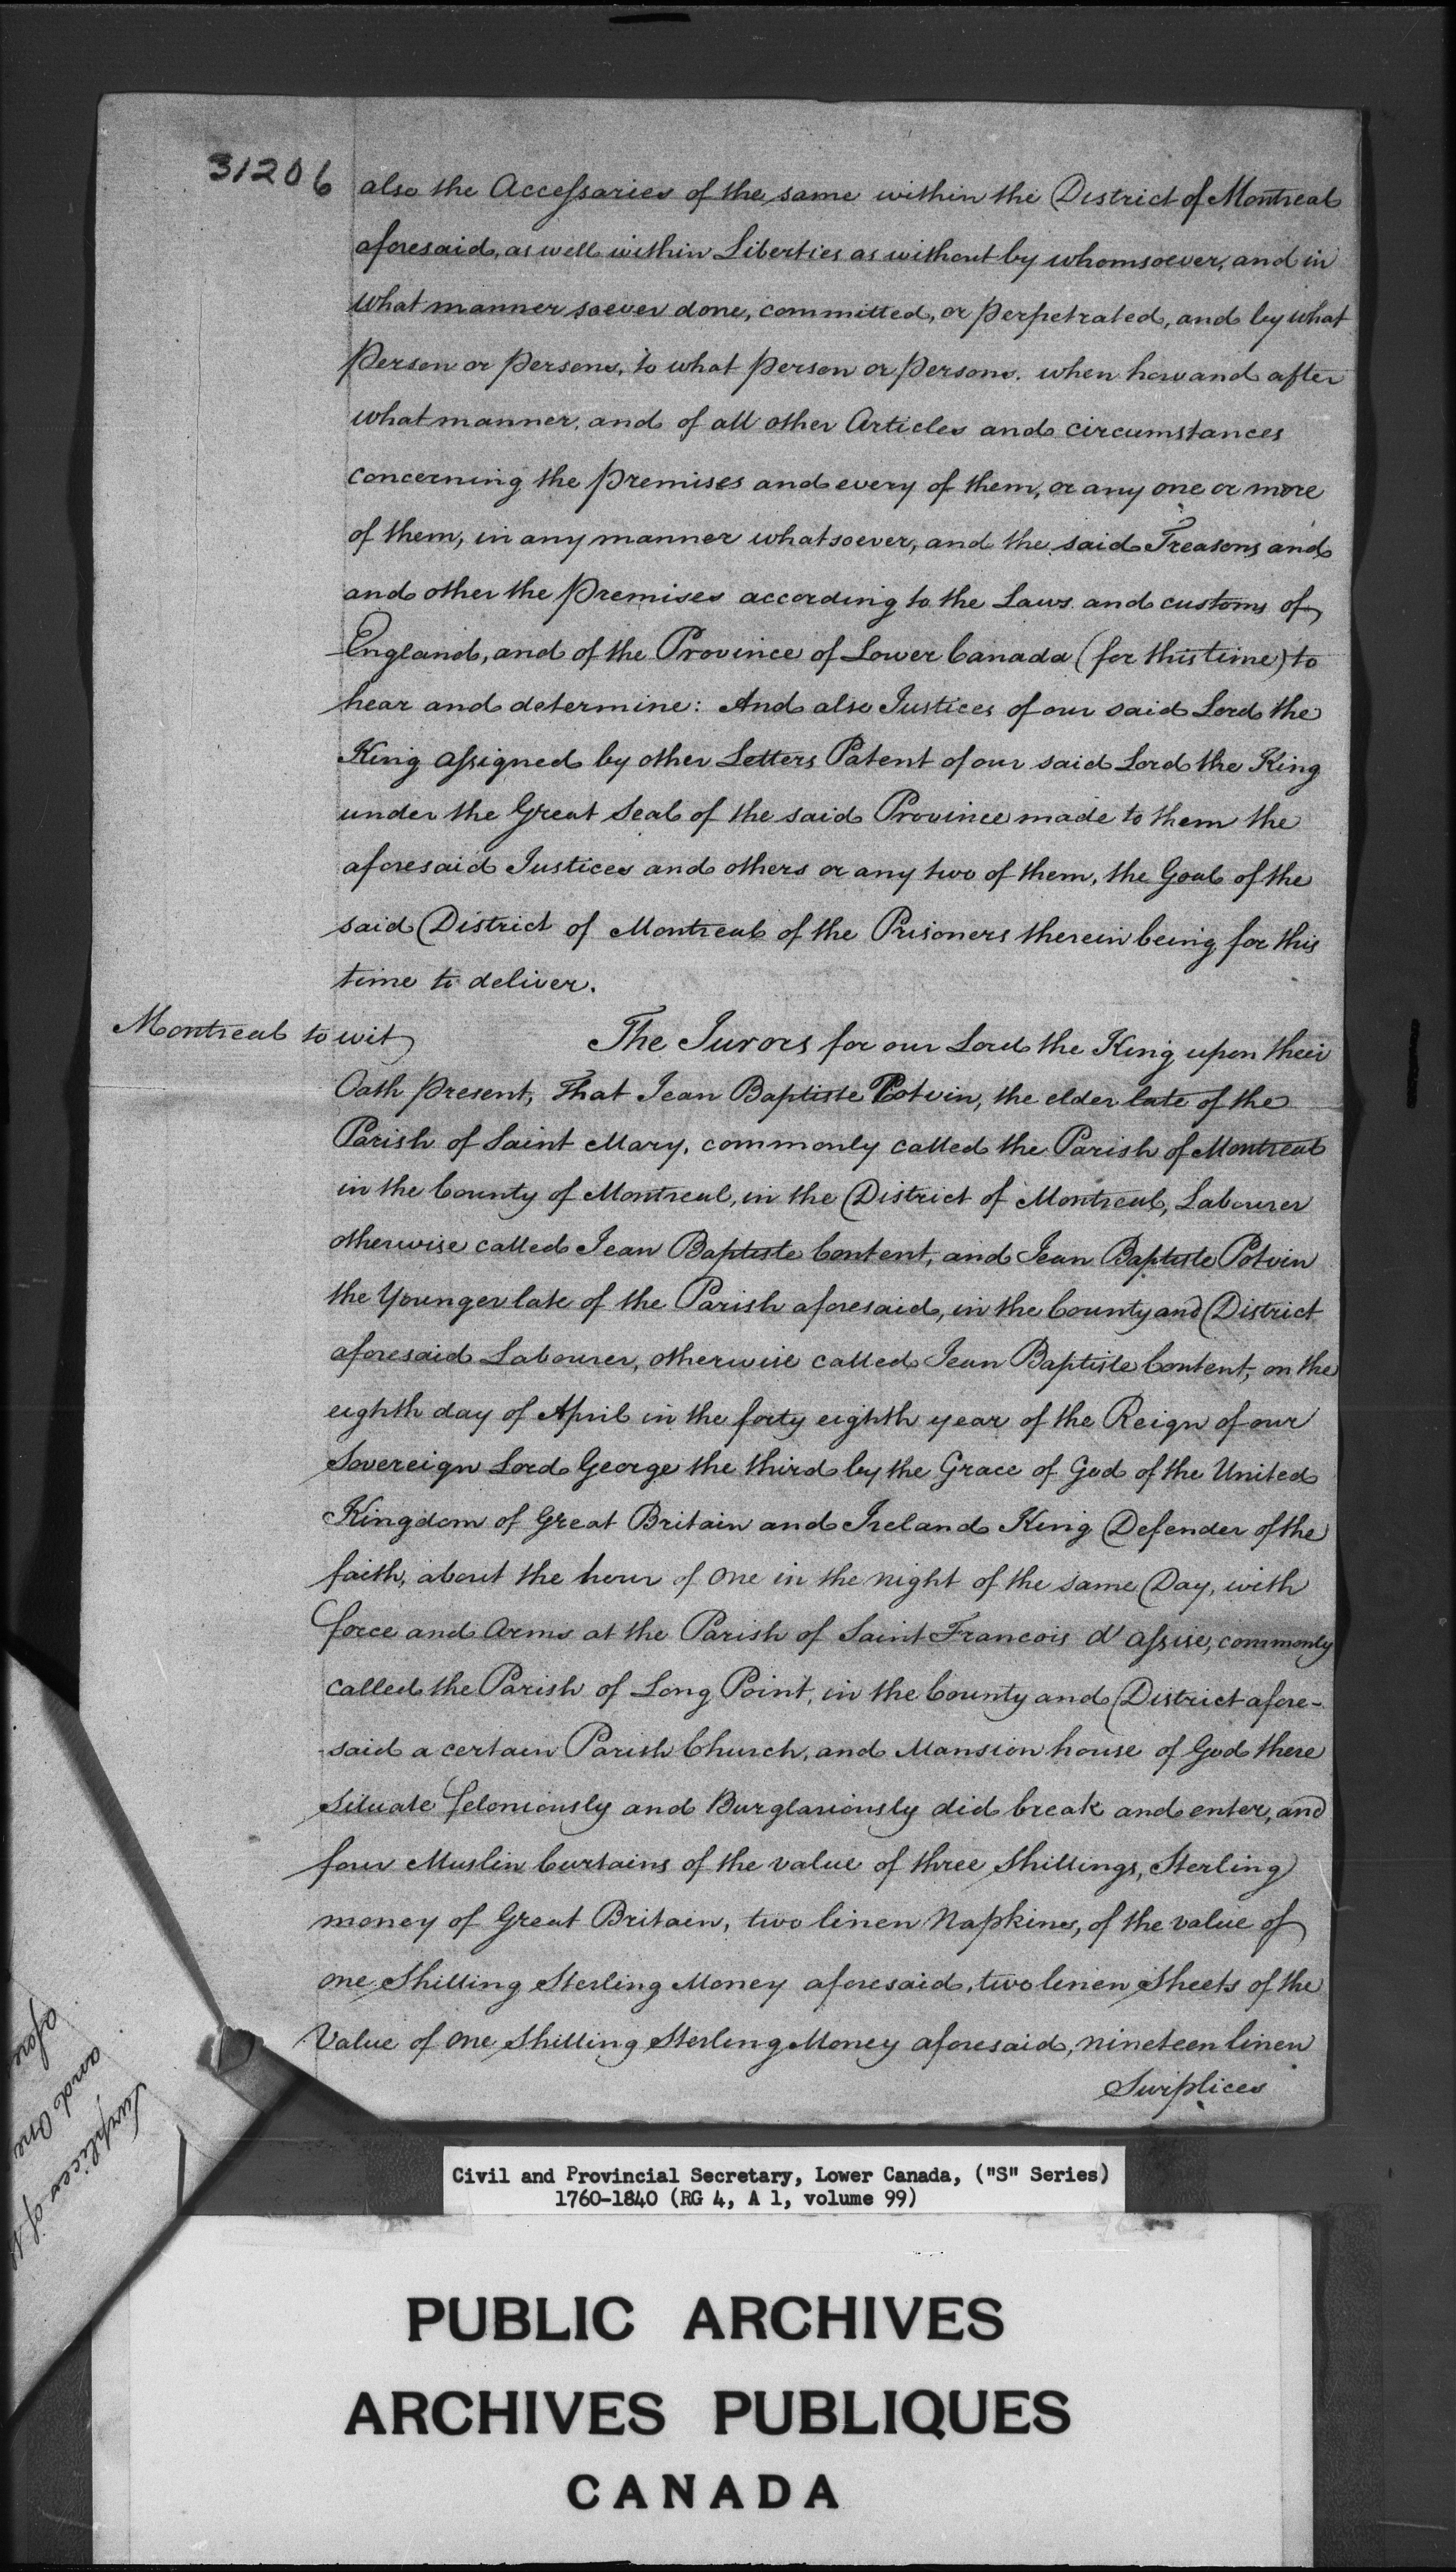 31206
also the Accessaries of the same within the District of Montreal
aforesaid, as well within Liberties as without by whomsoever, and in
what manner soever done, committed, or perpetrated, and by what
Person or Persons, to what Person or Persons. when how and after
what manner, and of all other Articles and circumstances
concerning the Premises and every of them, or any one or more
of them, in any manner whatsoever, and the said Treasons and
and other the Premises according to the Laws and customs of
England, and of the Province of Lower Canada (for this time) to
hear and determine: And also Justices of our said Lord the
King assigned by other Letters Patent of our said Lord the King
under the Great Seal of the said Province made to them the
aforesaid Justices and others or any two of them, the Goal of the
said District of Montreal of the Prisoners therein being for this
time to deliver.
Montreal to wit
The Jurors for our Lord the King upon their
Oath present, That Jean Baptiste Potvin, the elder late of the
Parish of Saint Mary, commonly called the Parish of Montreal
in the County of Montreal, in the District of Montreal, Labourer
otherwise called Jean Baptiste Content, and Jean Baptiste Potvin
the Younger late of the Parish aforesaid, in the County and District
aforesaid Labourer, otherwise called Jean Baptiste Content, on the
eighth day of April in the forty eighth year of the Reign of our
Sovereign Lord George the third by the Grace of God of the United
Kingdom of Great Britain and Ireland King Defender of the
faith, about the hour of One in the night of the same Day, with
force and Arms at the Parish of Saint Francois d'Assise, commonly
called the Parish of Long Point, in the County and District afore-
-said a certain Parish Church, and Mansion house of God there
Situate feloniously and Burglariously did break and enter, and
four Muslin Curtains of the value of three Shillings, Sterling
money of Great Britain, two linen Napkins, of the value of
one Shilling Sterling Money aforesaid, two linen Sheets of the
Value of One Shilling Sterling Money aforesaid, nineteen linen
Surplices
Surplices of
and One
afore
Civil and Provincial Secretary, Lower Canada, ("S" Series)
1760-1840 (RG 4, A 1, volume 99)
PUBLIC ARCHIVES
ARCHIVES PUBLIQUES
CANADA